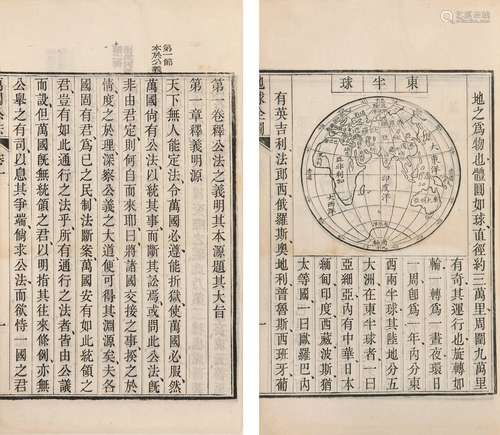 東半球
地之爲物也體圓如球直徑約三萬里周圍九萬里
有奇其運行也旋轉如
輪一轉爲一晝夜環日
一周卽爲一年內分東
西兩半球其陸地分五
大洲在東半球者一曰
亞細亞內有中華日本
緬甸印度西藏波斯猶
太等國一曰歐羅巴內
有英吉利法郎西俄羅斯奧地利普魯斯西班牙葡
大東洋
印度洋
第一節
本於公義
第一卷釋公法之義明其本源題其大旨
第一章釋義明源
天下無人能定法令萬國必遵能折獄使萬國必服然
萬國尚有公法以統其事而斷其訟焉或問此公法旣
非由君定則何自而來耶曰將諸國交接之事揆之於
情度之於理深察公義之大道便可得其淵源矣夫各
國固有君爲己之民制法斷案萬國安有如此統領之
君豈有如此通行之法乎所有通行之法者皆由公議
而設但萬國旣無統領之君以明指其往來條例亦無
公舉之有司以息其爭端倘求公法而欲恃一國之君
萬國公法
卷一
一